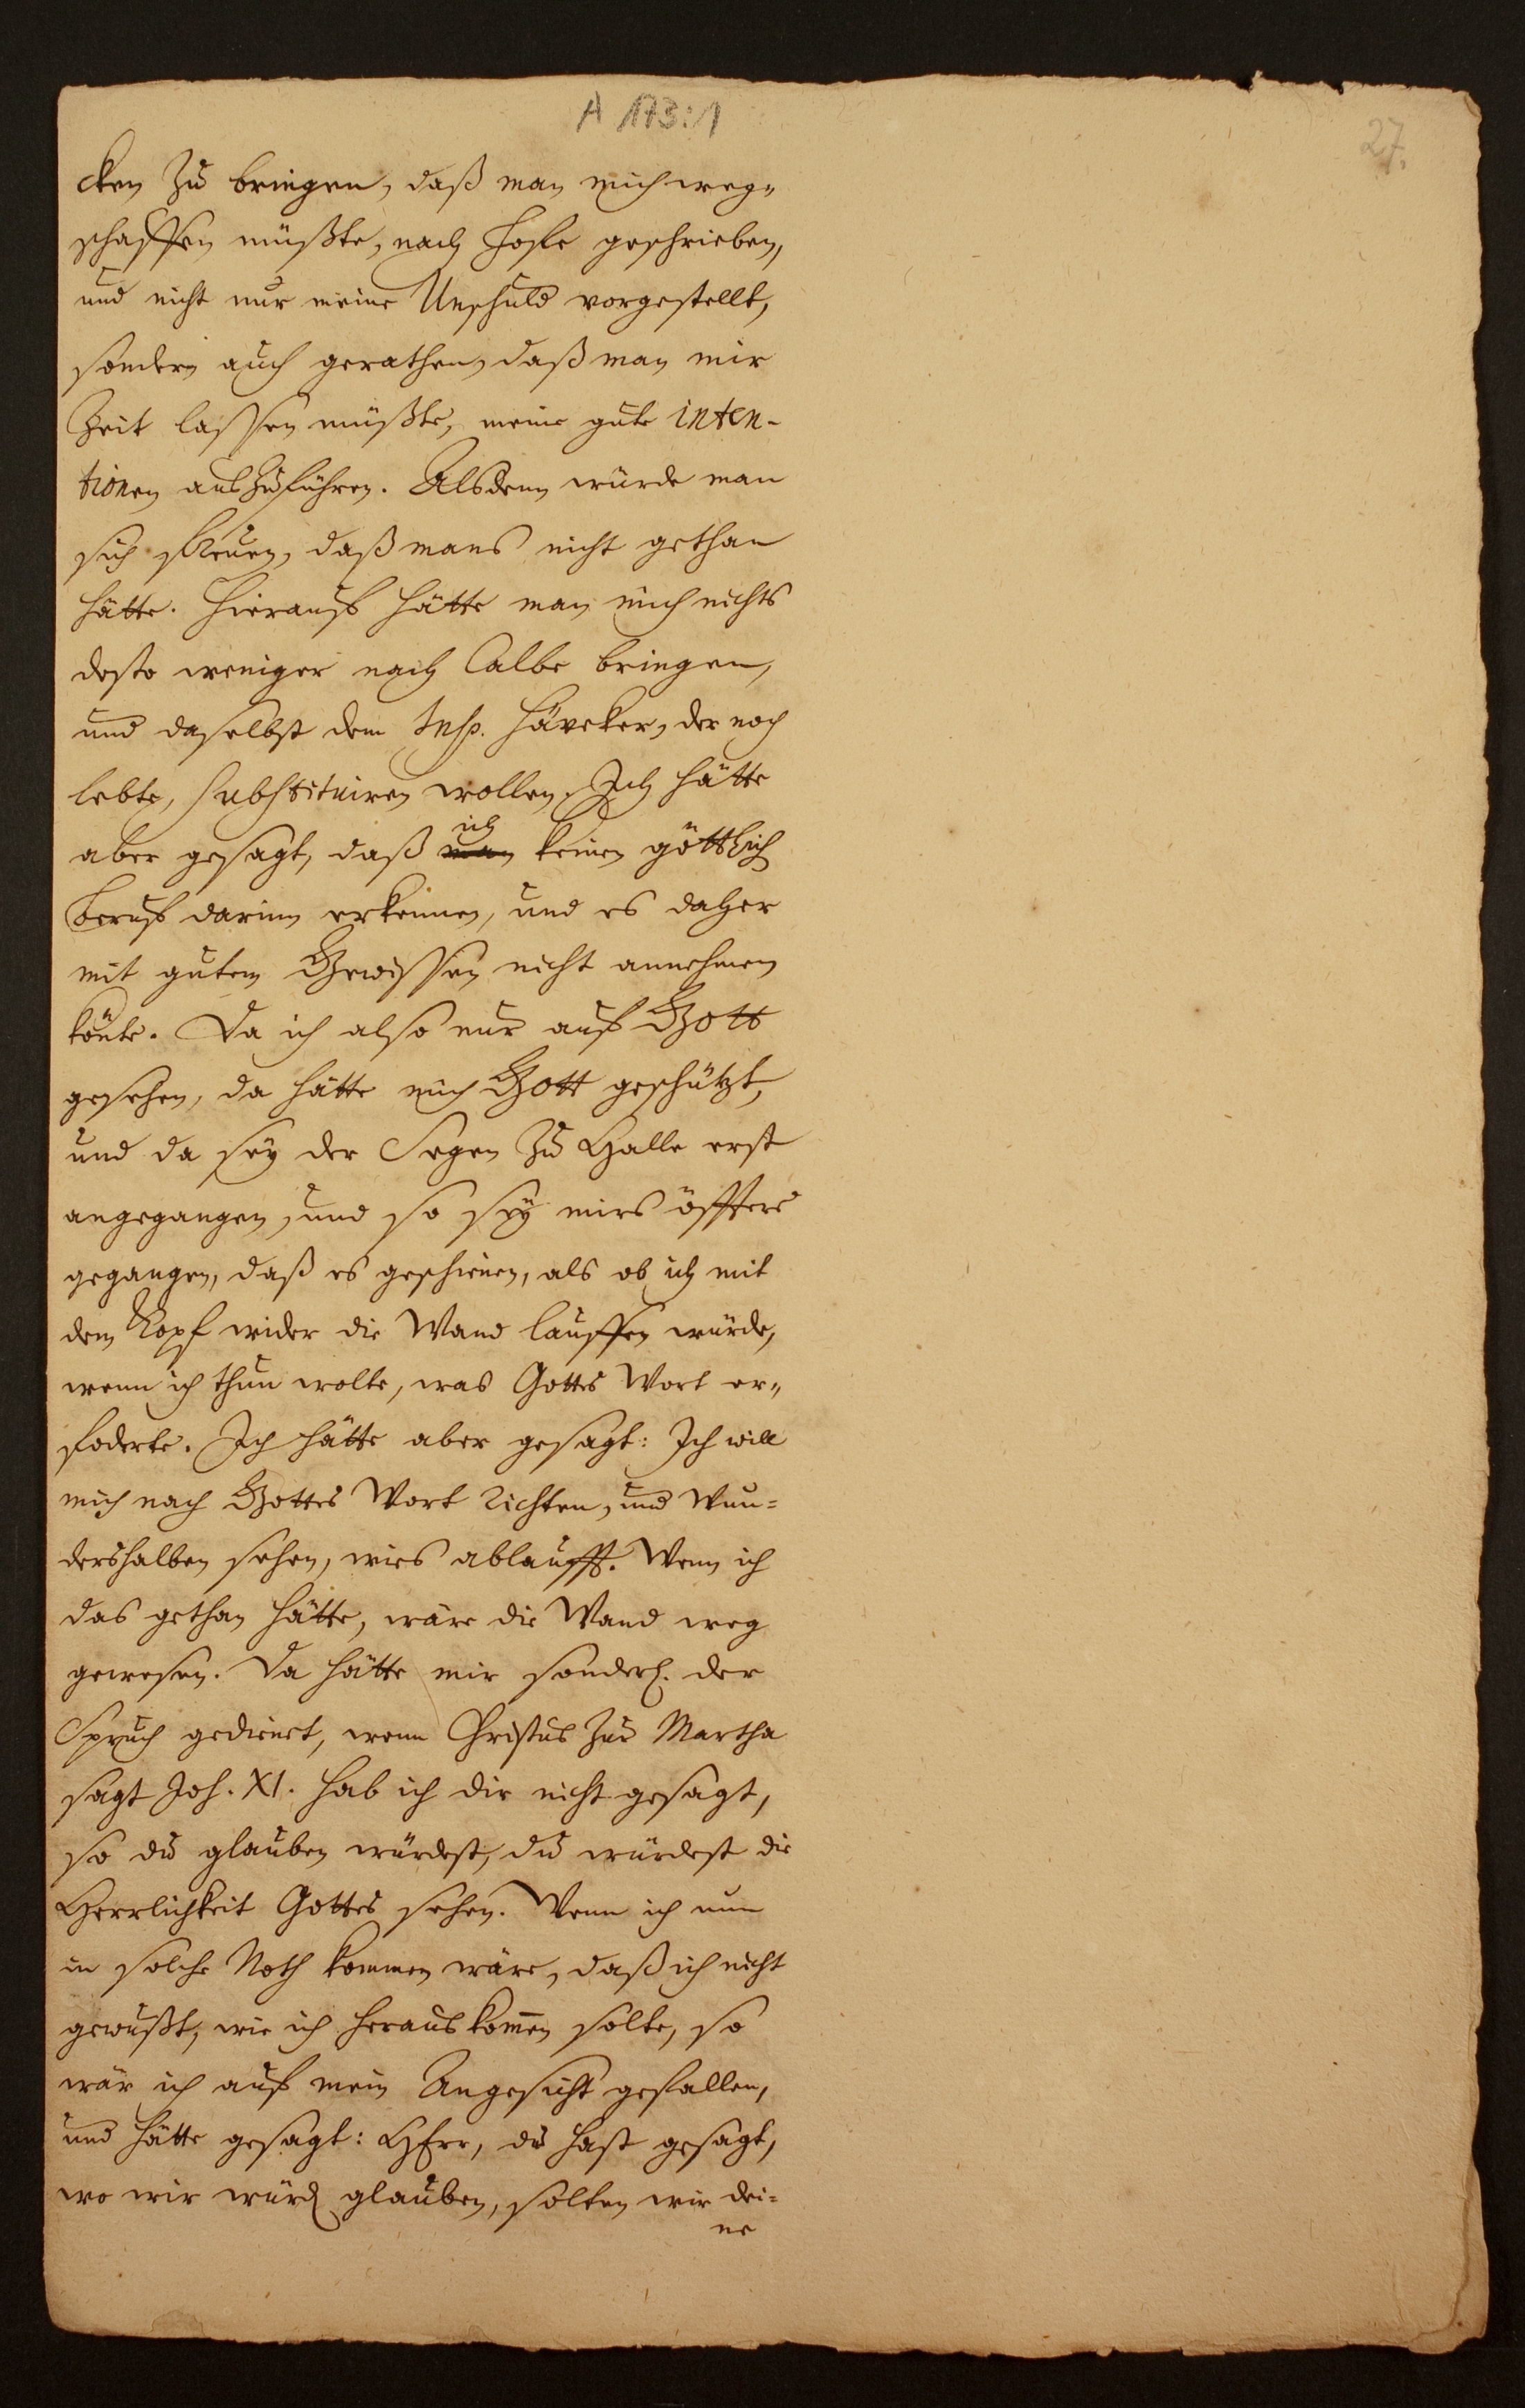 A 173:1
27.
cken zu bringen, daß man mich weg„
schaffen müßte, nach Hofe geschrieben,
und nicht nur meine Unschuld vorgestellt,
sondern auch gerathen, daß man mir
Zeit lassen müßte, meine gute inten-
tionen auszuführen. Alsdenn würde man
sich freuen, daß mans nicht gethan
hätte. Hierauf hätte man mich nichts
desto weniger nach Calbe bringen,
und daselbst dem Insp. Häveker, der noch
lebte, substituiren wollen. Ich hätte
ich
aber gesagt, daß man keinen göttlich
Beruf darinn erkennen, und es daher
mit gutem Gewissen nicht annehmen
kön̄te. Da ich also nur auf Gott
gesehen, da hätte mich Gott geschützt,
und da sey der Segen zu Halle erst
angegangen, und so sey mirs öffters
gegangen, daß es geschienen, als ob ich mit
dem Kopf wider die Wand lauffen würde,
wenn ich thun wolte, was Gottes Wort er„
foderte. Ich hätte aber gesagt: Ich will
mich nach Gottes Wort richten, und Wun=
dershalben sehen, wies ablaufft. Wenn ich
das gethan hätte, wäre die Wand weg
gewesen. Da hätte mir sonderl. der
Spruch gedienet, wenn Christus zur Martha
sagt Joh. XI. Hab ich dir nicht gesagt,
so du glauben würdest, du würdest die
Herrlichkeit Gottes sehen. Wenn ich nun
in solche Noth kommen wäre, daß ich nicht
gewußt, wie ich heraus kom̄en solte, so
wär ich auf mein Angesicht gefallen,
und hätte gesagt: HErr, du hast gesagt,
wo wir würd glauben, solten wir dei=
ne